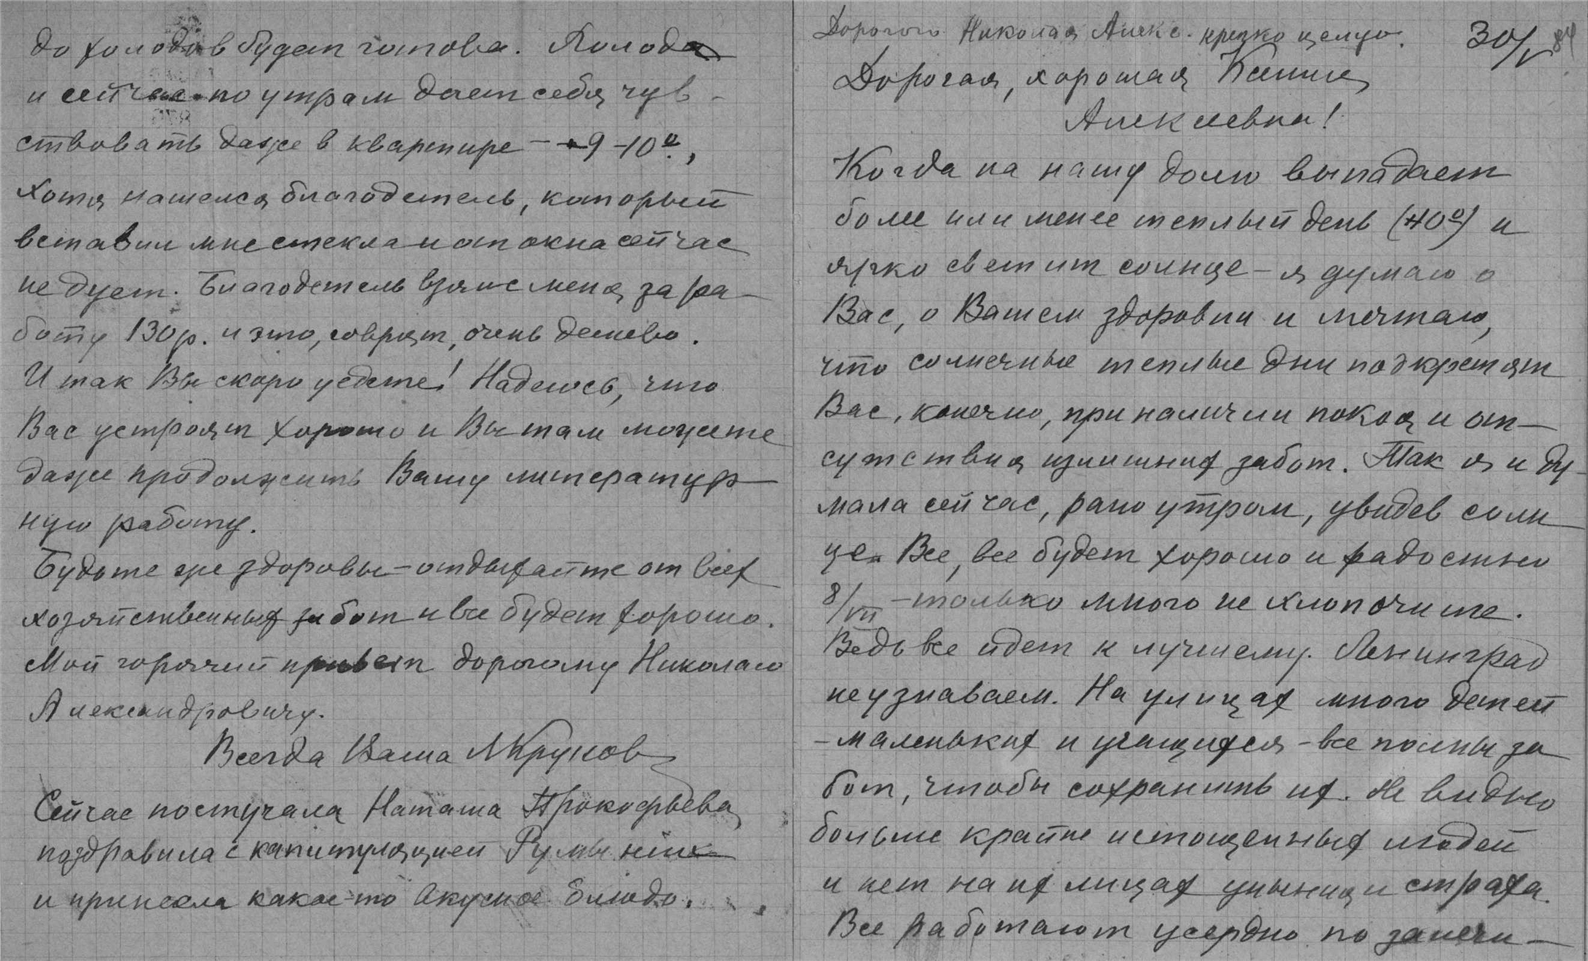 до холодов будет готова. Холода
и сейчас по утрам дает себя чув-
ствовать даже в квартире – +9-10°.,
Хотя нашелся благодетель, который
вставил мне стекла и от окна сейчас
не дует. Благодетель взял с меня за ра-
боту 130 р. и это, говорят, очень дешево.
Итак Вы скоро уедете! Надеюсь, что
Вас устроят хорошо и Вы там можете
даже продолжить Вашу литератур-
ную работу.
Будьте же здоровы – отдыхайте от всех
хозяйственных забот и все будет хорошо.
Мой горячий привет дорогому Николаю
Александровичу.
Всегда Ваша
Сейчас постучала Наташа Прокофьева,
поздравила с капитуляцией Румынии
и принесла какое-то вкусное блюдо.
Дорогого Николая Алекс. крепко целую.
30/V 84
Дорогая, хорошая Ксения
Алексеевна!
Когда на нашу долю выпадает
более или менее теплый день (+10°) и
ярко светит солнце – я думаю о
Вас, о Вашем здоровии и мечтаю,
что солнечные теплые дни подкрепят
Вас, конечно, при наличии покоя и от-
сутствия излишних забот. Так я и ду-
мала сейчас, рано утром, увидев солн
це. Все, все будет хорошо и радостно
8/VII – только много не хлопочите.
Ведь все идет к лучшему. Ленинград
неузнаваем. На улицах много детей
– маленьких и учащихся – все полны за
бот, чтобы сохранить их. Не видно
больше крайне истощенных людей
и нет на их лицах уныния и страха.
Все работают усердно по